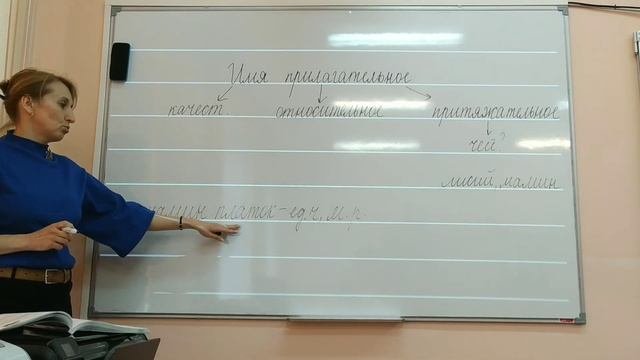 Имя прилагательное
качест. относительное притяжательное
чей?
лисий, мамин
мамин платок - ед.ч, м.р.